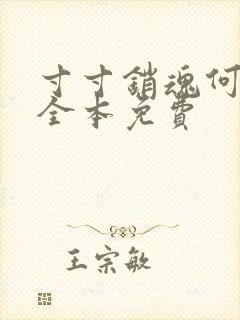 寸寸銷魂何
全本免費
王宗敏